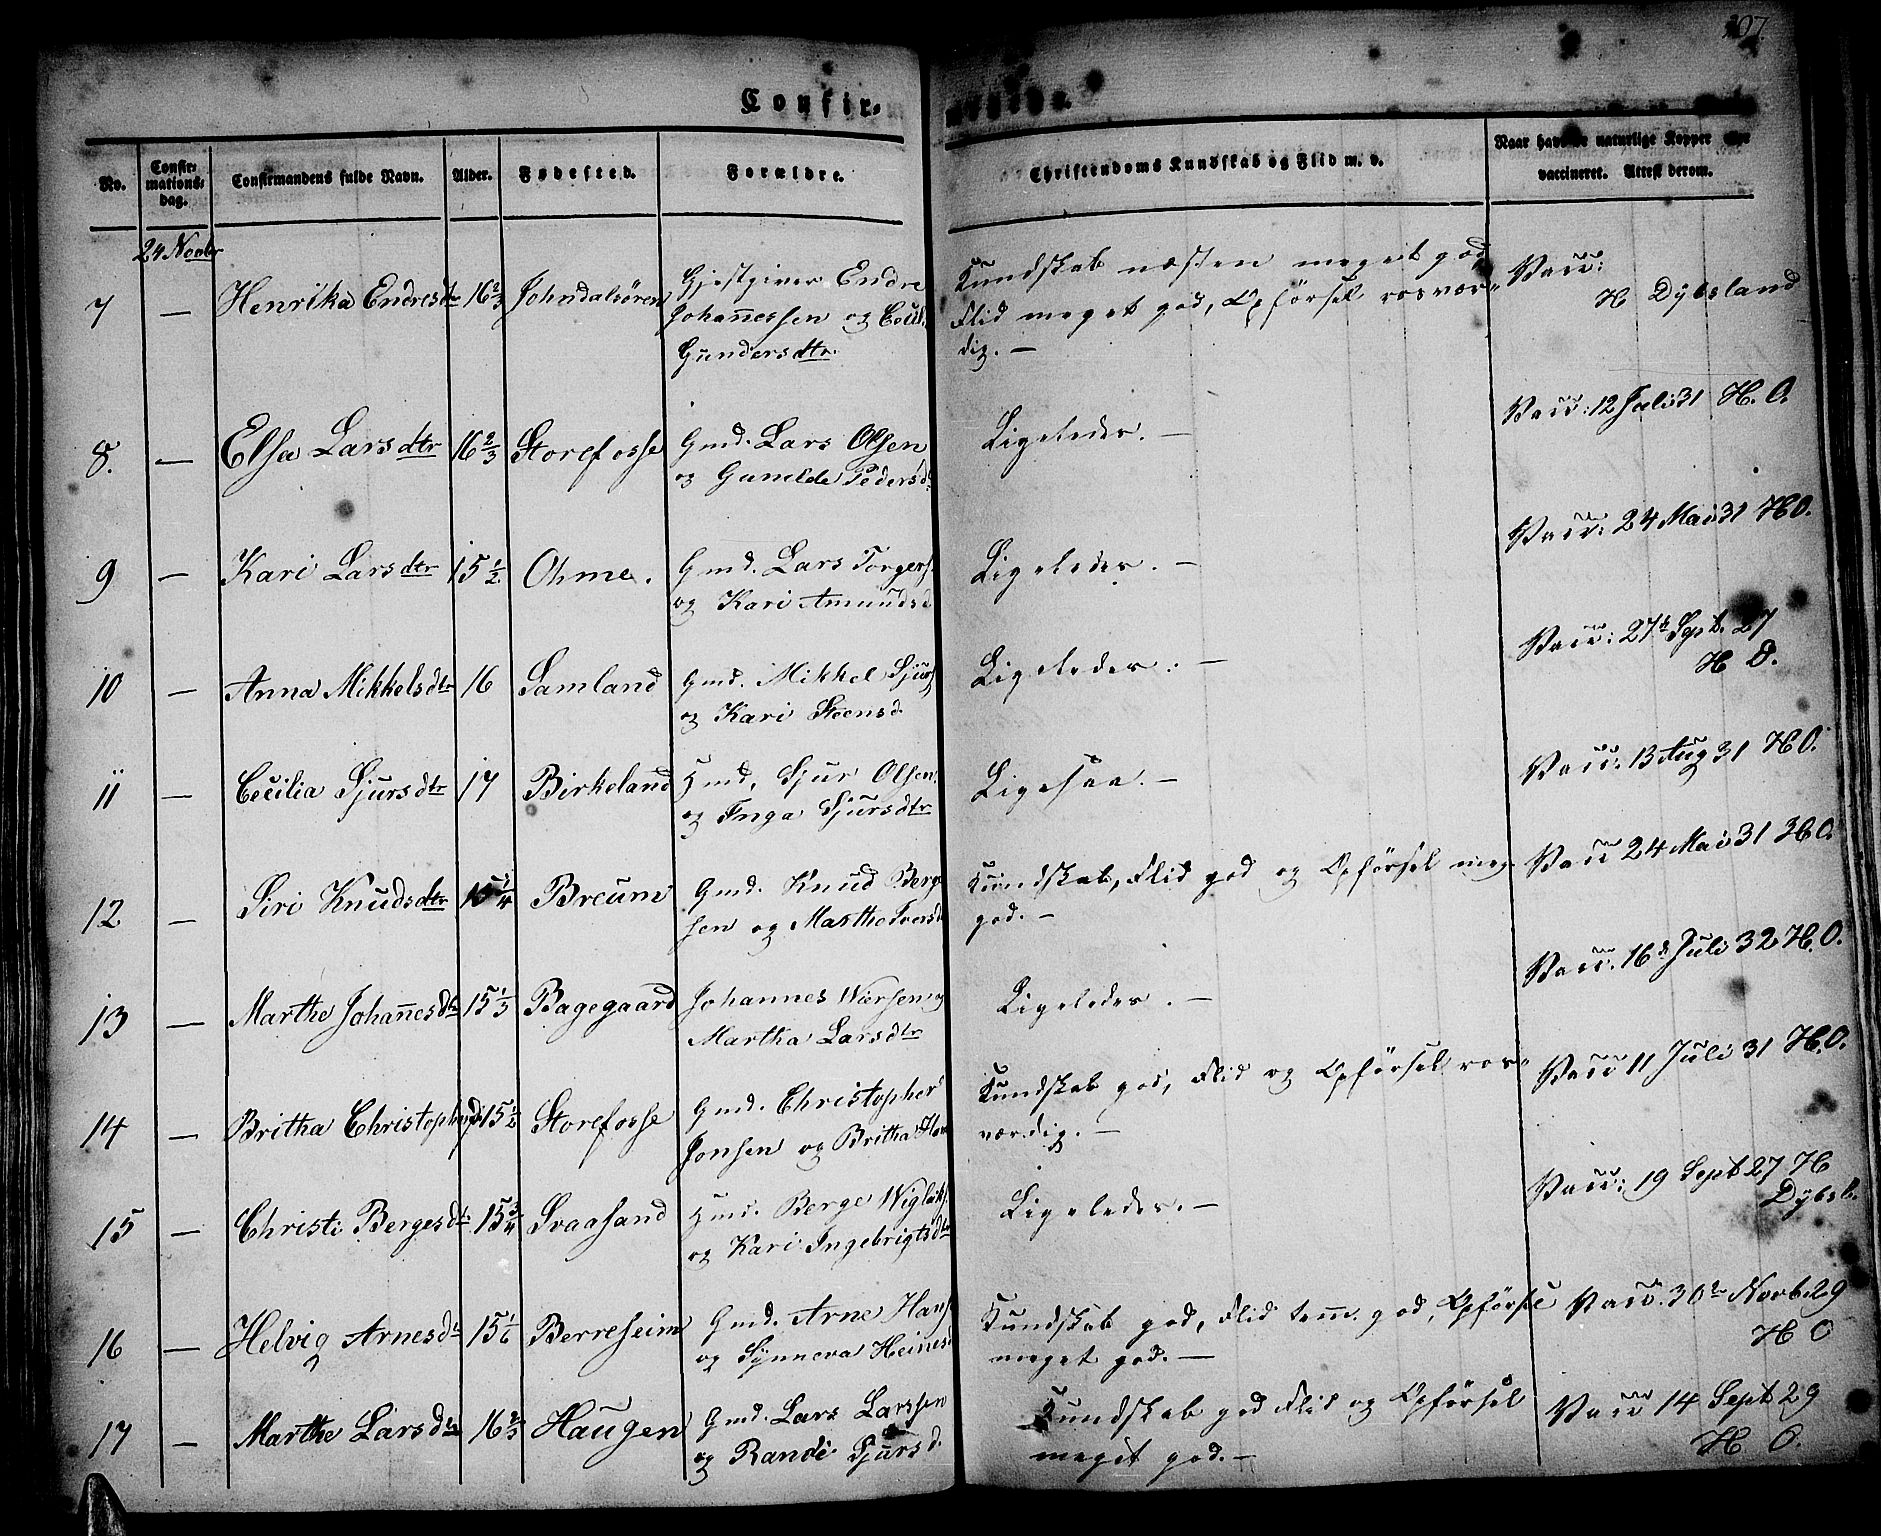 107.
Confir-
mations-
No.
Confir-
mations-
dag.
Confirmandens fulde Navn.
Alder.
Fødested.
Forældre.
Christendoms Kundskab og Flid m. v.
Naar havt de naturlige Kopper eller
vaccineret. Attest derom.
24 Novbr
7 — Henrika Endresdtr 16 2/3 Johndalsören Gjestgiver Endre
Johannessen og Cecil.
Gundersdtr.
Kundskab næsten meget god
Flid meget god, Opførsel rosvær-
dig. —
Vacc:
H Dybsland
8. — Elsa Larsdtr 16 2/3 Storefosse Gmd. Lars Olsen
og Gunilde Pedersd
Ligeledes. —
Vacc: 12 Juli 31 H. O.
9 — Kari Larsdtr 15 1/2 Ohme. Gmd. Lars Torgers.
og Kari Amundsd
Ligeledes. —
Vacc: 24 Mai 31 H O.
10 — Anna Mikkelsdtr 16 Samland Gmd. Mikkel Sjurs
og Kari Steensd.
Ligeledes. —
Vacc: 27 Sept. 27
H D.
11 — Cecilia Sjursdtr 17 Birkeland Hmd, Sjur Olsen
og Inga Sjursdtr
Ligesaa. —
Vacc. 13 Aug 31 H O.
12 — Siri Knudsdtr 15 1/4 Breum Gmd. Knud Berge
sen og Marthe Iversd
Kundskab, Flid god og Opførsel meg
god. —
Vacc 24 Mai 31 H O.
13 — Marthe Johannesdtr 15 1/3 Bagegaard Johannes Niersen og
Martha Larsdtr
Ligeledes. —
Vacc. 16 Juli 32 H. O.
14 — Britha Christophersd 15 1/2 Storefosse Gmd. Christopher
Jonsen og Britha
Kundskab god, Flid og Opførsel ros-
værdig. —
Vacc 11 Juli 31 H. O.
15 — Christi Bergesdtr 15 3/4 Svaasand Hmd. Berge Wigleiks
og Kari Ingebrigtsdtr
Ligeledes. —
Vacc: 19 Sept 27 H
Dybsl.
16 — Helvig Arnesdtr 15 1/6 Berreseim Gmd. Arne Hans
og Synneva Heinesd
Kundskab god, Flid tem. god, Opførsel
meget god. —
Vacc. 30 Novb. 29
H O
17 — Marthe Larsdtr 16 2/3 Haugen Gmd. Lars Larssen
og Randi Sjursd.
Kundskab god Flid og Opførsel
meget god. —
Vacc 14 Sept 29
H O.